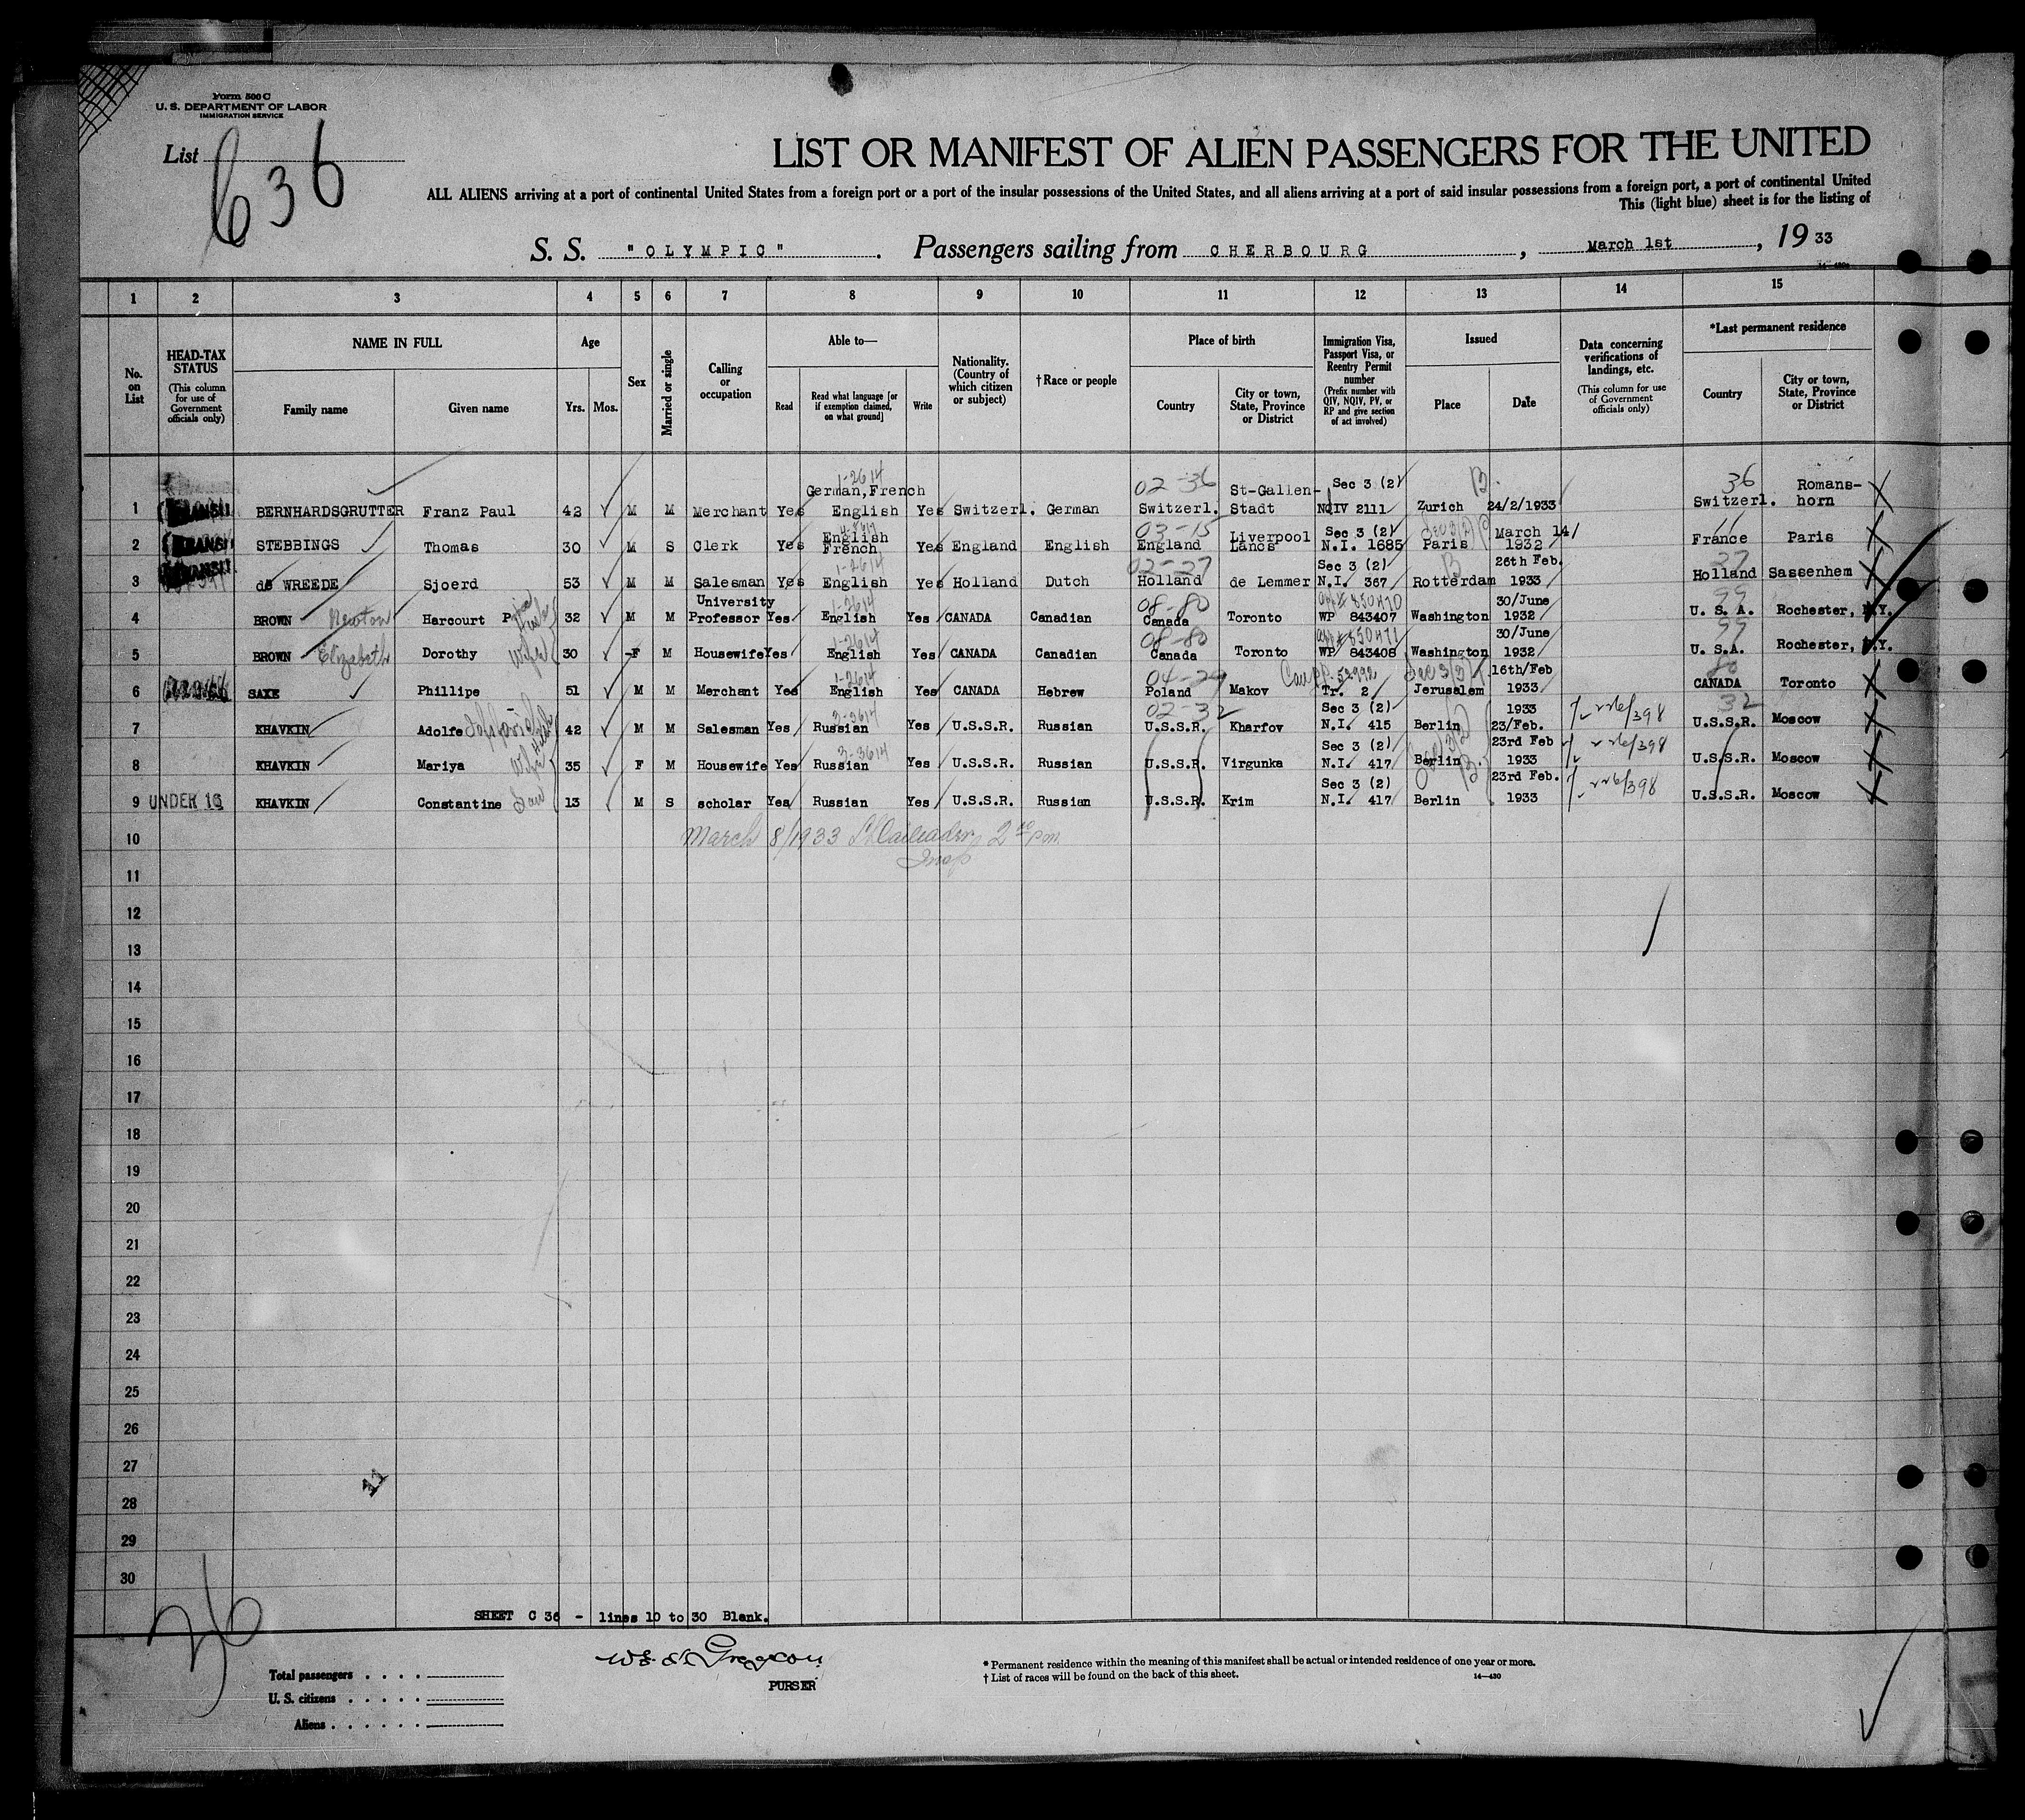 Form 500 C
U. S. DEPARTMENT OF LABOR
IMMIGRATION SERVICE
List 636
LIST OR MANIFEST OF ALIEN PASSENGERS FOR THE UNITED
ALL ALIENS arriving at a port of continental United States from a foreign port or a port of the insular possessions of the United States, and all aliens arriving at a port of said insular possessions from a foreign port, a port of continental United
This (light blue) sheet is for the listing of
S. S. "OLYMPIC". Passengers sailing from CHERBOURG, March 1st, 1933
1 2 3 4 5 6 7 8 9 10 11 12 13 14 15
No. on List
HEAD-TAX STATUS
(This column for use of Government officials only)
NAME IN FULL
Family name Given name
Age
Yrs. Mos.
Sex
Married or single
Calling or occupation
Able to—
Read
Read what language [or if exemption claimed, on what ground]
Write
Nationality. (Country of which citizen or subject)
†Race or people
Place of birth
Country
City or town, State, Province or District
Immigration Visa, Passport Visa, or Reentry Permit number
(Prefix number with QIV, NQIV, PV, or RP and give section of act involved)
Issued
Place Date
Data concerning verifications of landings, etc.
(This column for use of Government officials only)
*Last permanent residence
Country
City or town, State, Province or District
1 BERNHARDSGRUTTER Franz Paul 42 M M Merchant Yes 1-2614 German, French English Yes Switzerl. German 02-36 Switzerl. St-Gallen-Stadt Sec 3 (2) NQIV 2111 Zurich 24/2/1933 36 Switzerl. Romans-horn
2 STEBBINGS Thomas 30 M S Clerk Yes English French Yes England English 03-15 England Liverpool Lancs Sec 3 (2) N.I. 1685 Paris March 14/ 1932 France Paris
3 de WREEDE Sjoerd 53 M M Salesman Yes 1-2614 English Yes Holland Dutch 02-27 Holland de Lemmer Sec 3 (2) N.I. 367 Rotterdam 26th Feb. 1933 27 Holland Sassenhem
4 BROWN Newton Harcourt P 32 M M University Professor Yes 1-2614 English Yes CANADA Canadian 08-80 Canada Toronto 850470 WP 843407 Washington 30/June 1932 99 U. S. A. Rochester, N.Y.
5 BROWN Elizabeth Dorothy Wife 30 F M Housewife Yes 1-2614 English Yes CANADA Canadian 08-80 Canada Toronto 850471 WP 843408 Washington 30/June 1932 99 U. S.A. Rochester, N.Y.
6 SAXE Phillipe 51 M M Merchant Yes 1-2614 English Yes CANADA Hebrew 04-29 Poland Makov Tr. 2 Jerusalem 16th/Feb 1933 80 CANADA Toronto
7 KHAVKIN Adolfe 42 M M Salesman Yes 3-3614 Russian Yes U.S.S.R. Russian 02-32 U.S.S.R. Kharfov Sec 3 (2) N.I. 415 Berlin 1933 23/Feb. 32 U.S.S.R. Moscow
8 KHAVKIN Mariya Wife 35 F M Housewife Yes 3-3614 Russian Yes U.S.S.R. Russian U.S.S.R. Virgunka Sec 3 (2) N.I. 417 Berlin 23rd Feb 1933 U.S.S.R. Moscow
9 UNDER 16 KHAVKIN Constantine Son 13 M S scholar Yes Russian Yes U.S.S.R. Russian U.S.S.R. Krim Sec 3 (2) N.I. 417 Berlin 23rd Feb. 1933 U.S.S.R. Moscow
10 March 8/1933 2 pm
Insp
11
12
13
14
15
16
17
18
19
20
21
22
23
24
25
26
27
11
28
29
30
SHEET C 36 - lines 10 to 30 Blank.
36
PURSER
Total passengers
U. S. citizens
Aliens
* Permanent residence within the meaning of this manifest shall be actual or intended residence of one year or more.
† List of races will be found on the back of this sheet. 14—430